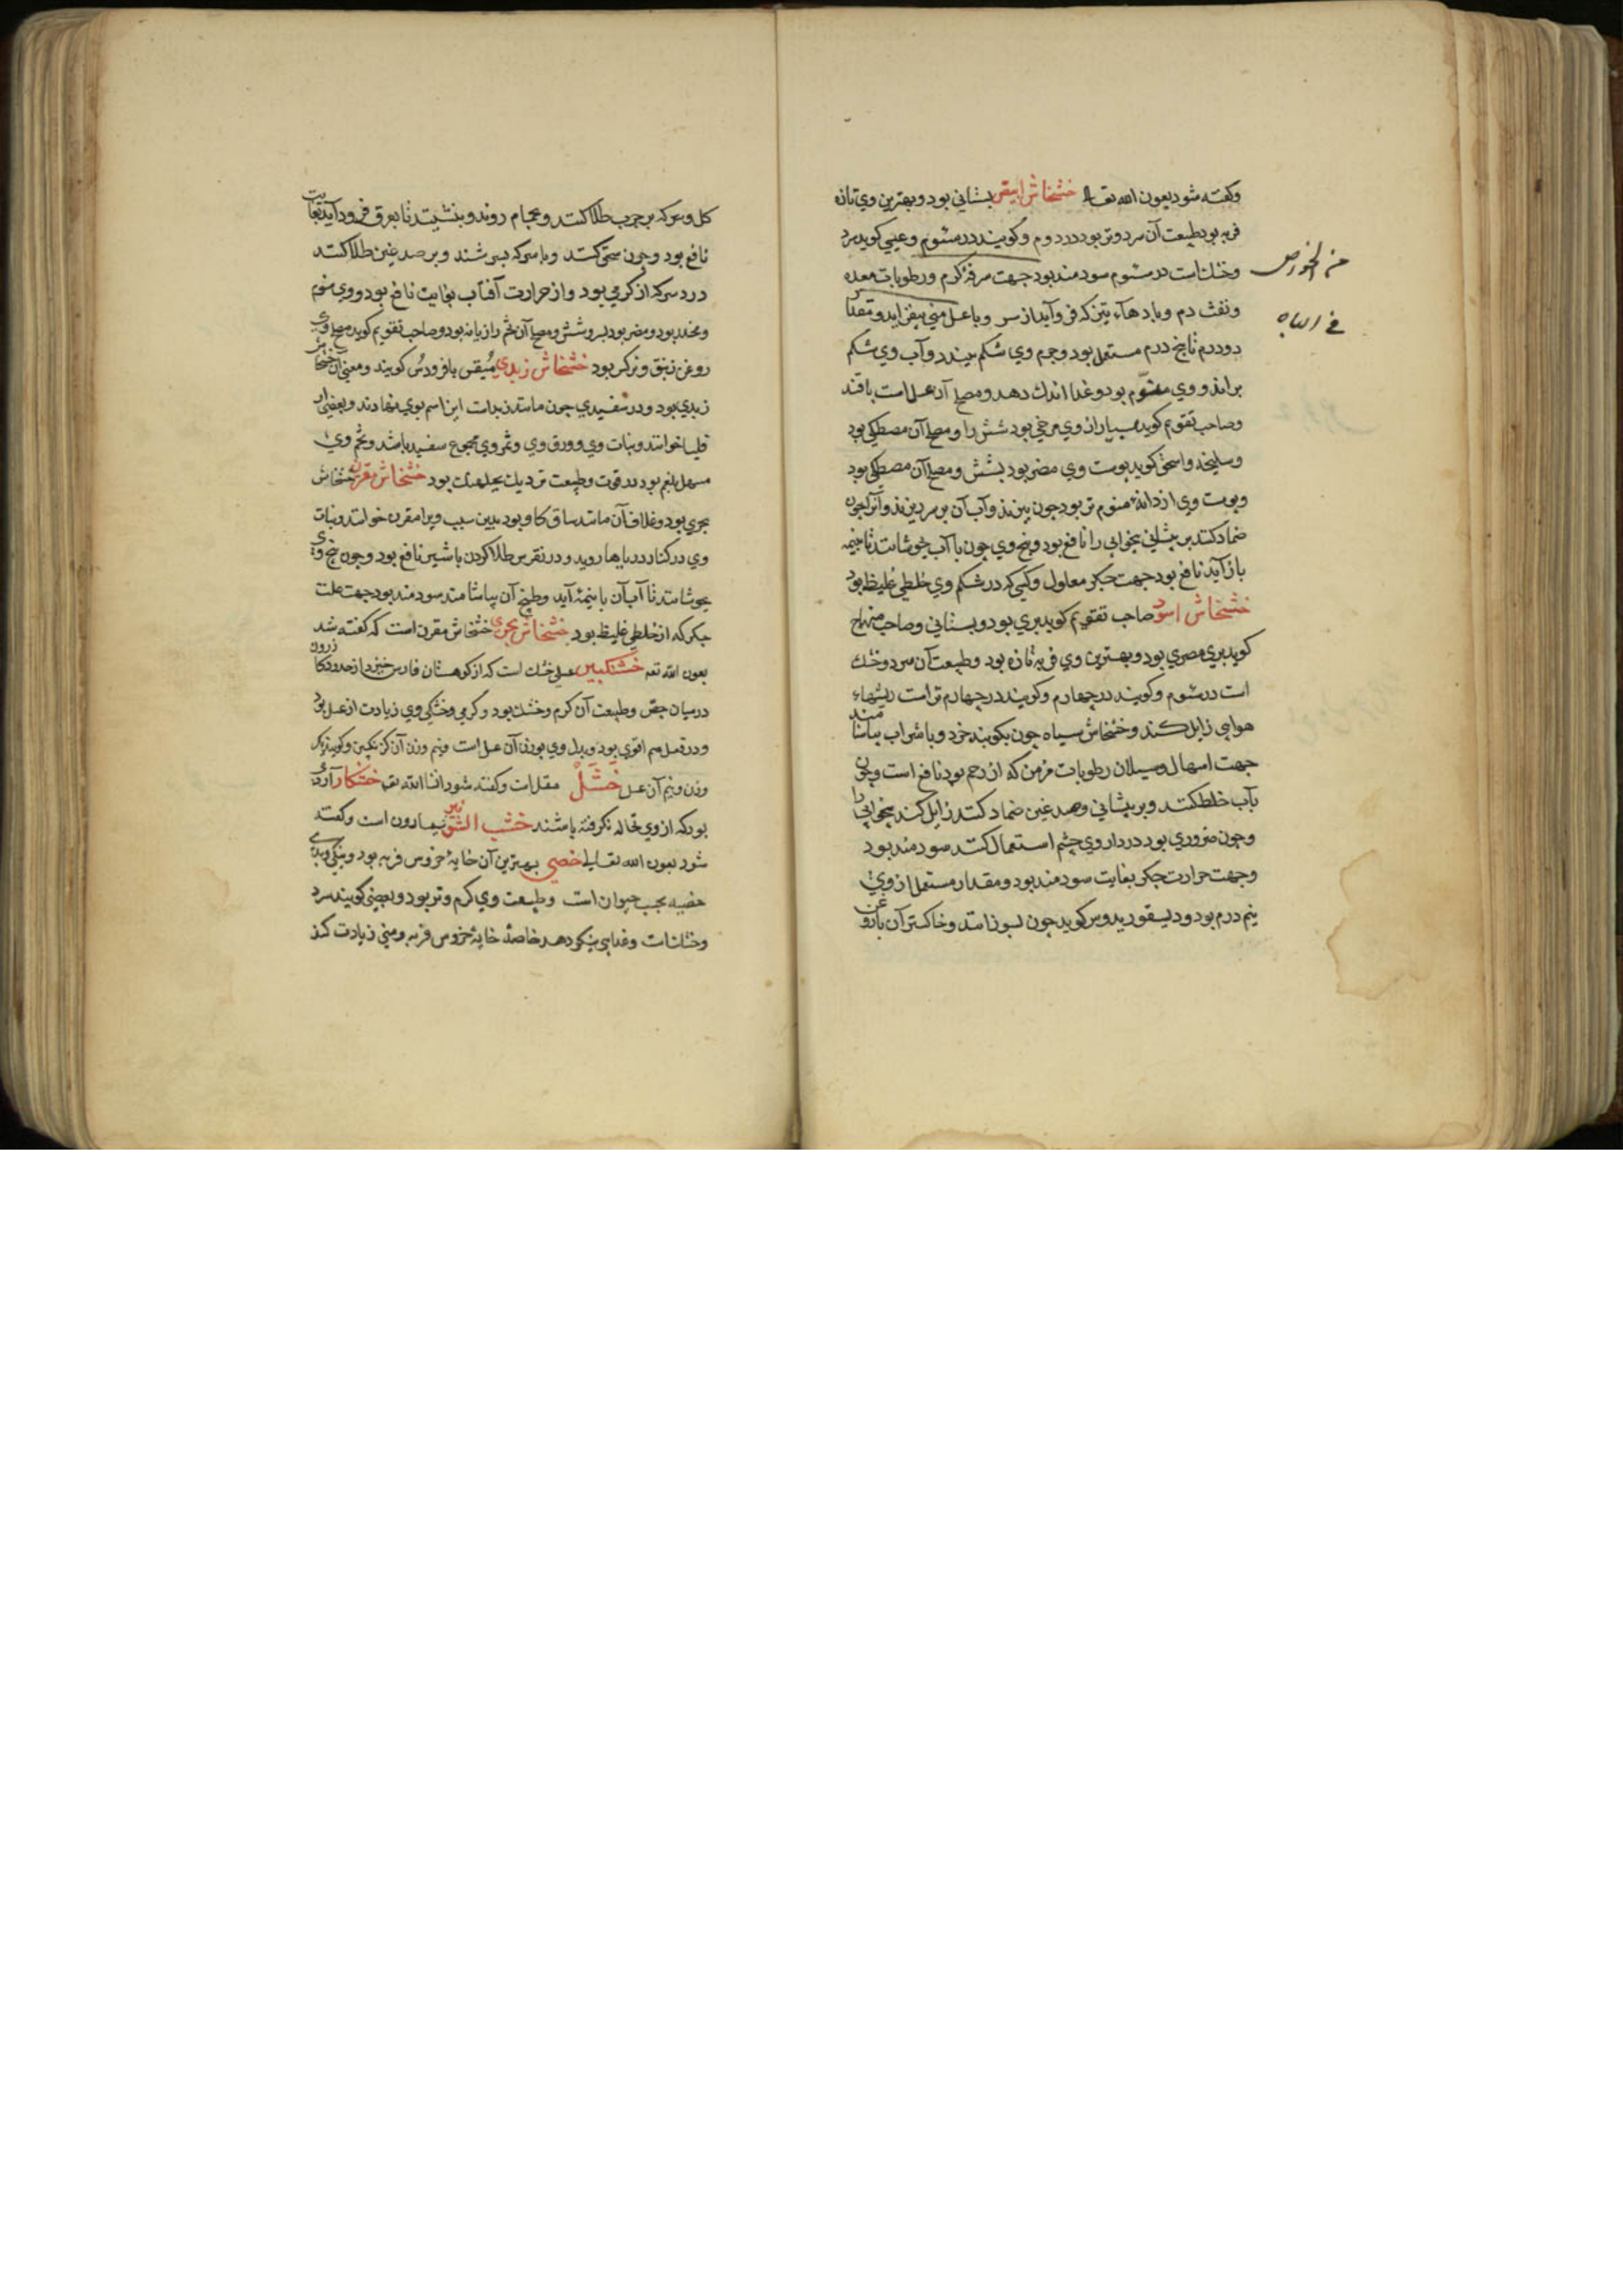 وکفته شود بعون الله تعالی خشخاش ابیض بستانی بود و بهترین وی تازه
فربه بود طبیعت آن سرد و تر بود در دوم و کویند در سیوم و عیسی کوید سرد
وخشک است در سیوم سودمند بود جهت سرفه کرم و رطوبات معده
ونفث دم و باد هاء که فرو آید از سر و با عسل منی بیفزاید و مقدار
دو درم تا پنج درم مستعمل بود و جرم وی شکم ببندد و آب وی شکم
براند و وی منوّم بود و غذا اندک دهد و مصلح آن عسل است با قند
وصاحب تقویم کوید بسیار از وی مرخی بود شش را و مصلح آن مصطکی بود
وسلیخه و اسحق کوید پوست وی مضر بود بشش و مصلح آن مصطکی بود
وپوست وی از دانه منوم تر بود چون بپزند و آب آن بر سر ریزند و آنرا چون
ضماد کنند بر پیشانی بیخوابی را نافع بود و بیخ وی چون با آب بجوشانند تا بنیمه
باز آید نافع بود جهت جکر معلول و کسی که در شکم وی خلطی غلیظ بود
خشخاش اسود صاحب تقویم کوید بری بود و بستانی و صاحب منهاج
کوید بری مصری بود و بهترین وی فربه تازه بود و طبیعت آن سرد و خشک
است در سیوم و کویند در چهارم و کویند در چهارم تر است ریشهاء
هوایی زایل کند و خشخاش سیاه چون بکوبند خرد و با شراب بیاشامند
جهت اسهال و سیلان رطوبات مزمن که از رحم بود نافع است و چون
بآب خلط کنند و بر پیشانی و صدغین ضماد کنند زایل کند بیخوابی را
وچون ضروری بود در داروی چشم استعمال کنند سودمند بود
وجهت حرارت جکر بغایت سودمند بود و مقدار مستعمل از وی
نیم درم بود و دیسقوریدوس کوید چون بسوزانند و خاکستر آن با روغن
من الخواص
فی الباه
کل و سرکه بر جرب طلا کنند و بحمام روند و بنشینند تا بعرق فرود آید بغایت
نافع بود و چون سحق کنند و با سرکه بسرشند و بر صدغین طلا کنند
درد سر که از کرمی بود و از حرارت آفتاب بغایت نافع بود و وی منوم
ومخدر بود و مضر بود بسر و شش و مصلح آن تخم رازیانه بود و صاحب تقویم کوید مصلح وی
روغن زنبق و نرکس بود خشخاش زبدی میقن بافرودس کویند و معنی آن خشخاش
زبدی بود و در سفیدی چون مانند زبد است این اسم بوی نهادند و بعضی او را
قلیا خوانند و نبات وی و ورق وی و ثمر وی مجموع سفید باشد و تخم وی
مسهل بلغم بود در قوت و طبیعت نزدیک بجلبهنک بود خشخاش مقرن خشخاش
بحری بود و غلاف آن مانند ساق کاو بود بدین سبب ویرا مقرن خوانند و نبات
وی در کنار دریاها روید و در نقرس طلا کردن با شیر نافع بود و چون بیخ وی
بجوشانند تا آب آن با نیمه آید و طبیخ آن بیاشامند سودمند بود جهت علت
جکر که از خلطی غلیظ بود خشخاش بحری خشخاش مقرن است که کفته شد
بعون الله تعه خشکنکبین عسلی خشک است که از کوهستان فارس خیزد از حدود کازرون
در میان جص و طبیعت آن کرم و خشک بود و کرمی و خشکی وی زیادت از عسل بود
و در قوت هم اقوی بود و بدل وی بوزن آن عسل است و نیم وزن آن کزنکبین و کویند یک
وزن و نیم آن عسل خشل مقل است و کفته شود انشا الله تعه خشکار آردی
بود که از وی نخاله نکرفته باشند خشب الشونیز بهارون است و کفته
شود بعون الله تعالی خصی بهترین آن خایه خروس فربه بود و نیکی و بدی
خصیه بحسب حیوان است و طبیعت وی کرم و تر بود و بعضی کویند سرد
وخشک است و غذایی نیکو دهد خاصه خایه خروس فربه و منی زیادت کند